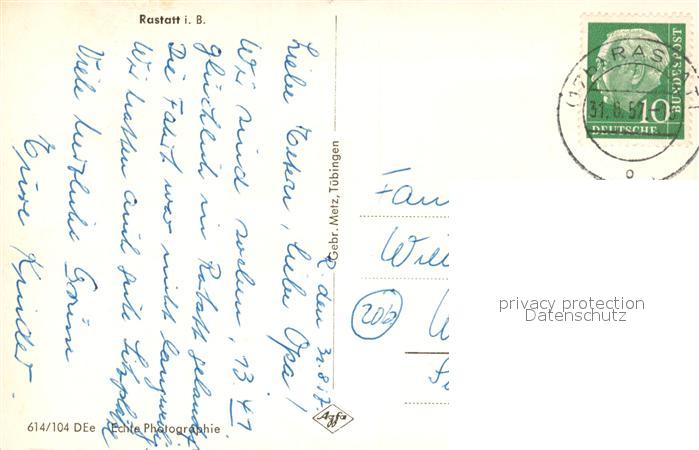 Rastatt i. B.
R. den 31.8.57.
Liebe Eltern, lieber Opa!
Wir sind soeben, 13.47
glücklich in Rastatt gelandet.
Die Fahrt war nicht langweilig
Wir hatten auch gute Sitzplätze
Viele herzliche Grüsse
Eure Kinder.
614/104 DEe Echte Photographie
Gebr. Metz, Tübingen
Agfa
Fam
Will
20b
DEUTSCHE
BUNDESPOST
10
RAS
31.8.57
privacy protection
Datenschutz